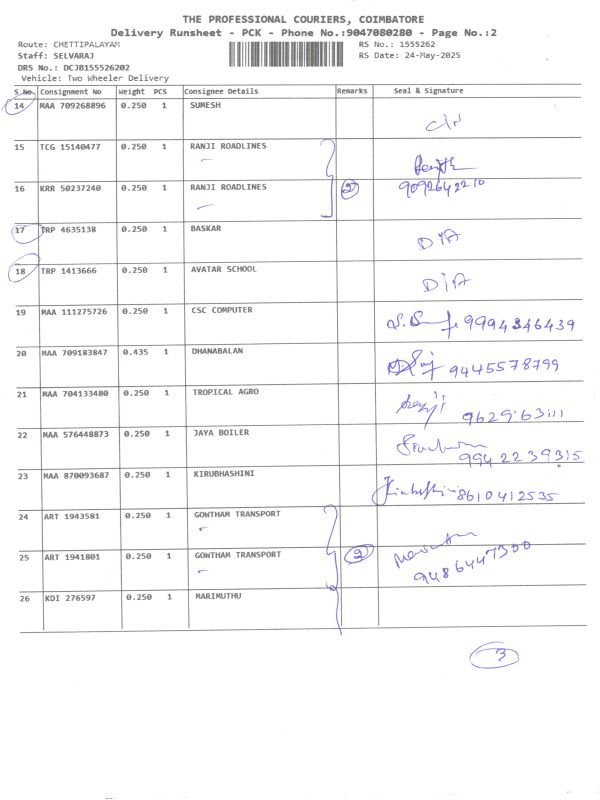 THE PROFESSIONAL COURIERS, COIMBATORE
Delivery Runsheet - PCK - Phone No.:9047080280 - Page No.:2
Route: CHETTIPALAYAM RS No.: 1555262
Staff: SELVARAJ RS Date: 24-May-2025
DRS No.: DCJB155526202
Vehicle: Two Wheeler Delivery
S No. Consignment No Weight PCS Consignee Details Remarks Seal & Signature
14 MAA 709268896 0.250 1 SUMESH
15 TCG 15140477 0.250 1 RANJI ROADLINES
16 KRR 50237240 0.250 1 RANJI ROADLINES 2 9092642210
17 TRP 4635138 0.250 1 BASKAR D/A
18 TRP 1413666 0.250 1 AVATAR SCHOOL D/A
19 MAA 111275726 0.250 1 CSC COMPUTER 9994346439
20 MAA 709183847 0.435 1 DHANABALAN 9445578799
21 MAA 704133480 0.250 1 TROPICAL AGRO
22 MAA 576448873 0.250 1 JAYA BOILER 9942239315
23 MAA 870093687 0.250 1 KIRUBHASHINI 8610412535
24 ART 1943581 0.250 1 GOWTHAM TRANSPORT
25 ART 1941801 0.250 1 GOWTHAM TRANSPORT 2 9486447300
26 KDI 276597 0.250 1 MARIMUTHU
3